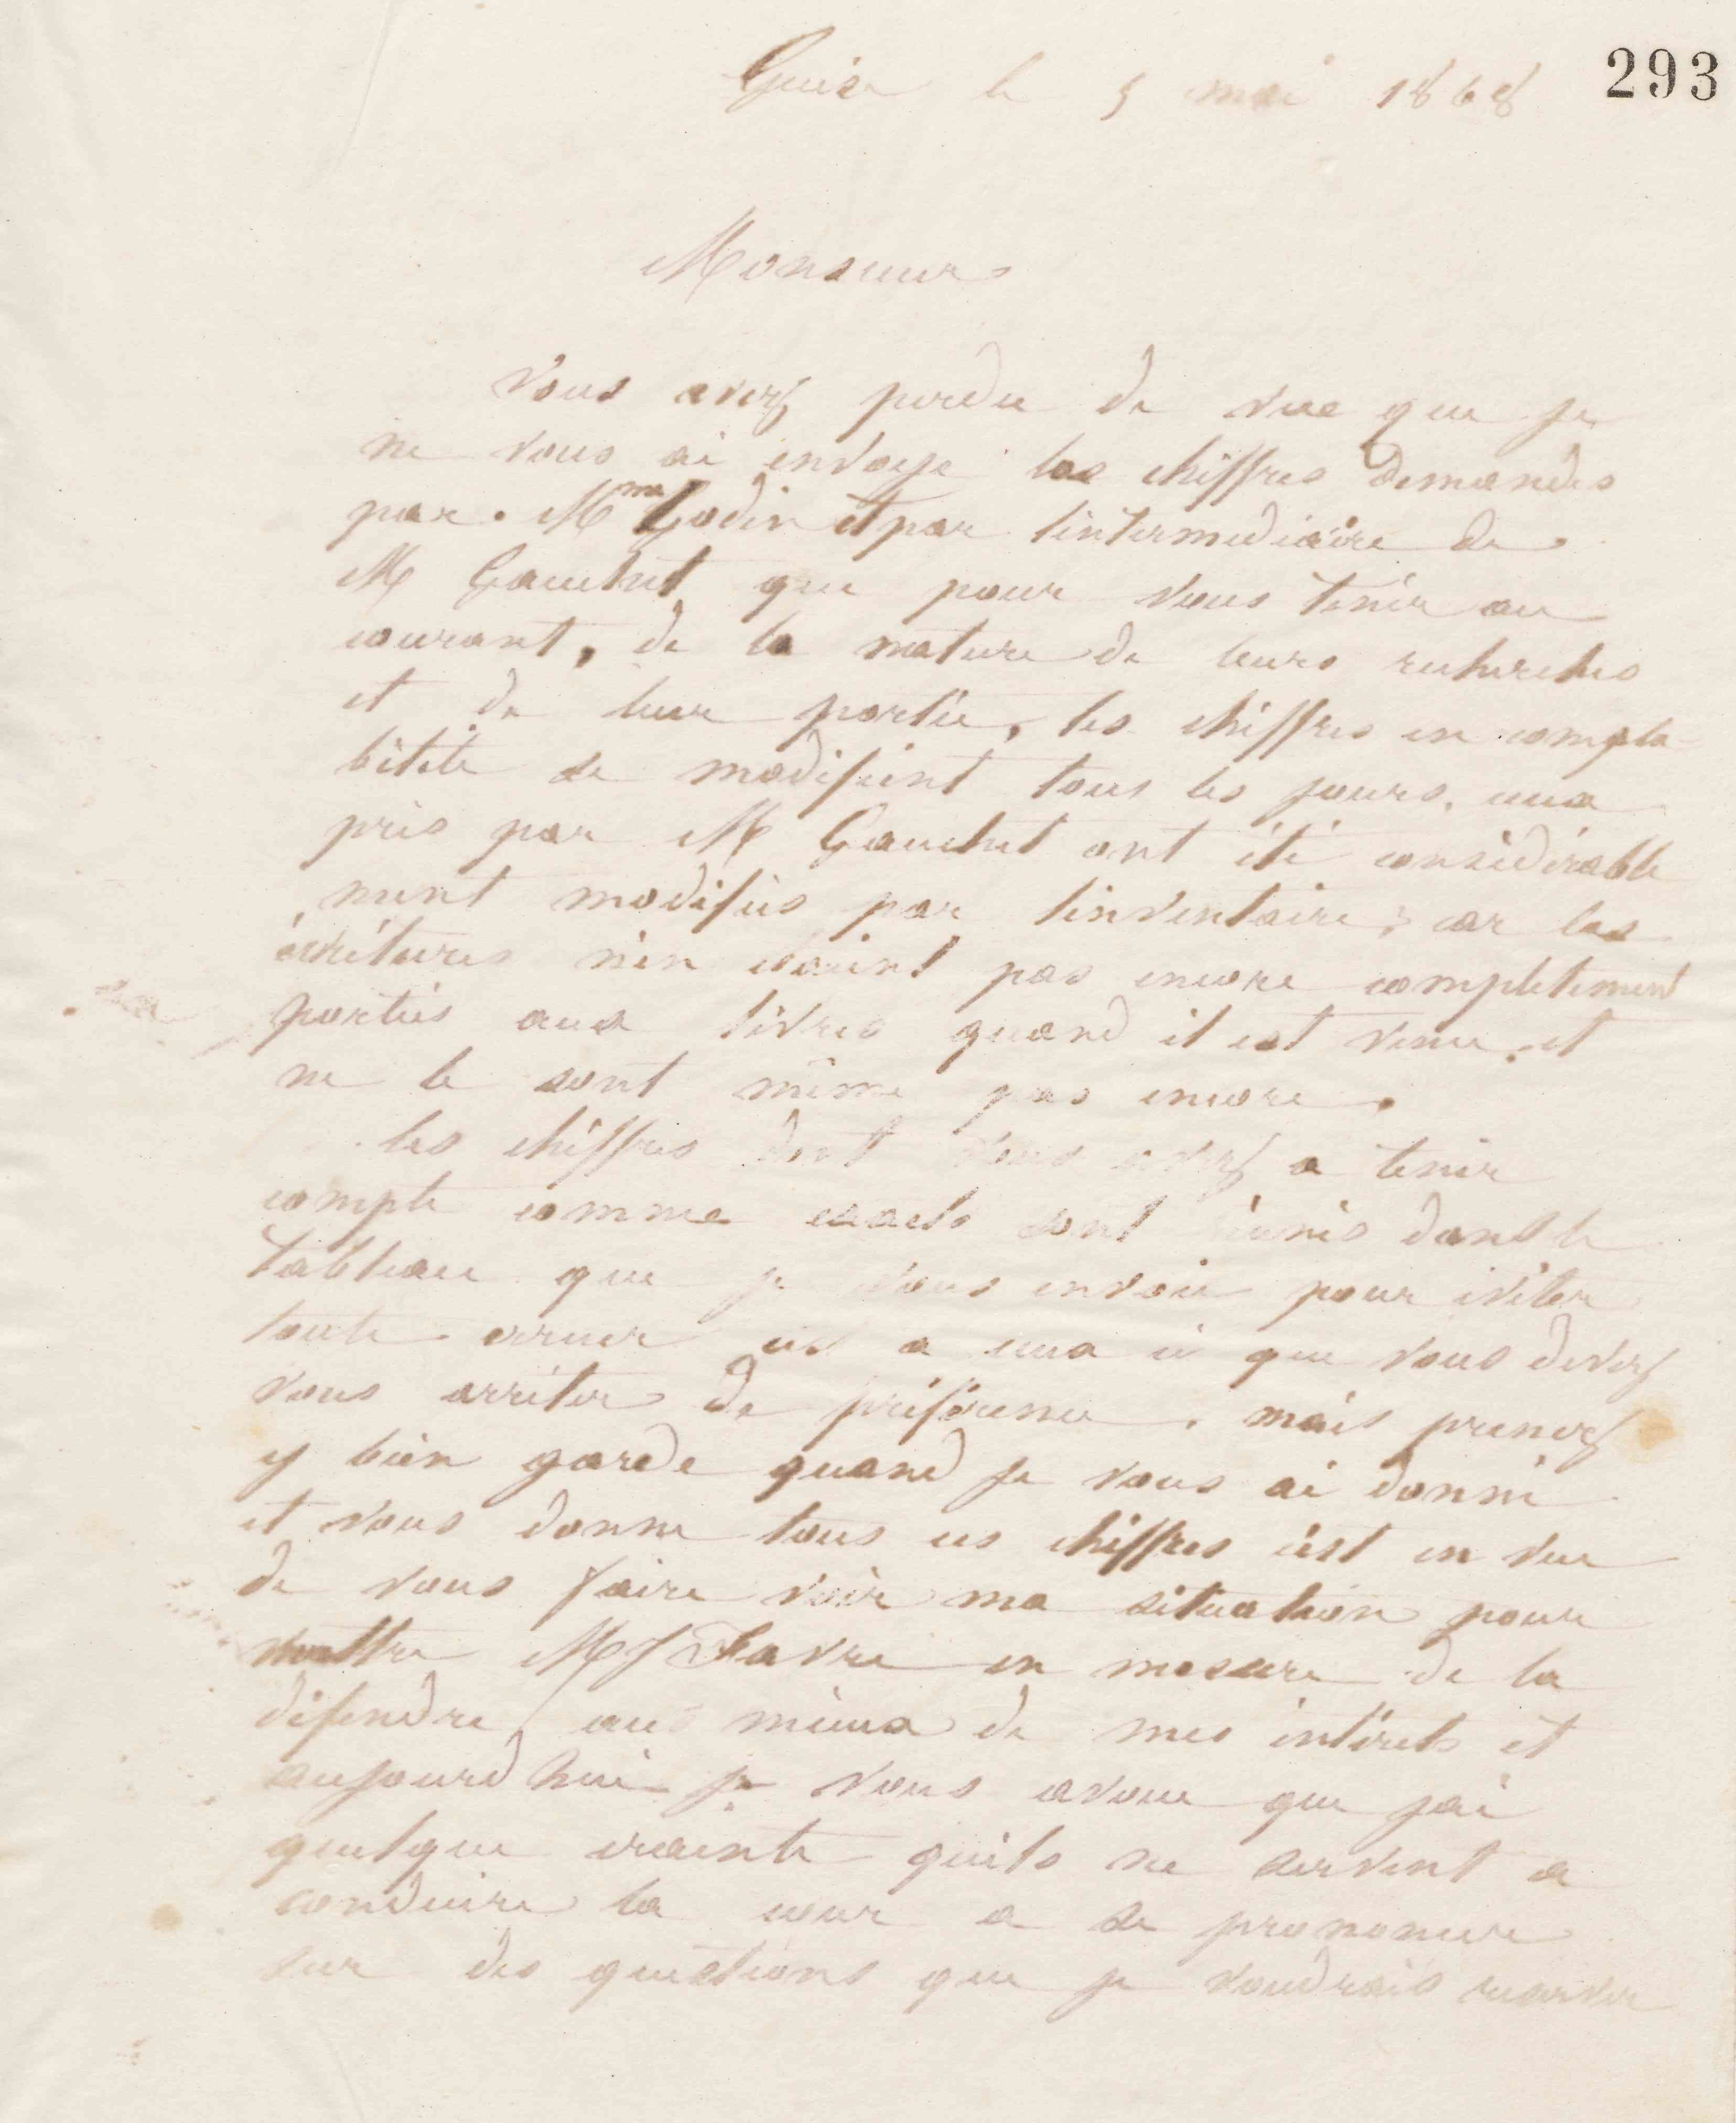 Guise le 5 mai 1868 293
Monsieur
Vous avez perdu de vue que je
ne vous ai envoyé les chiffres demandés
par Mme Godin et par lintermediaire de
M Gauchet que pour vous tenir au
courant, de la nature de leurs recherches
et de leur portée, les chiffres en compta-
bilité se modifient tous les jours, ceux
pris par M Gauchet ont été considérable
ment modifiés par linventaire, car les
écritures n'en étaient pas encore complètement
portées aux livres quand il est venu, et
ne le sont même pas encore.
les chiffres dont vous avez a tenir
compte comme exacts sont réunis dans le
tableau que je vous envoie pour éviter
toute erreur a ceux ci que vous devez
vous arrêter de préférence, mais prenez
y bien garde quand je vous ai donné
et vous donne tous ces chiffres c'est en vue
de vous faire voir ma situation pour
mettre M J Favre en mesure de la
défendre, au mieux de mes intérêts et
aujourdhui je vous avoue que jai
quelque crainte quils ne servent a
conduire la cour a se prononcer
sur des questions que je voudrais réserver